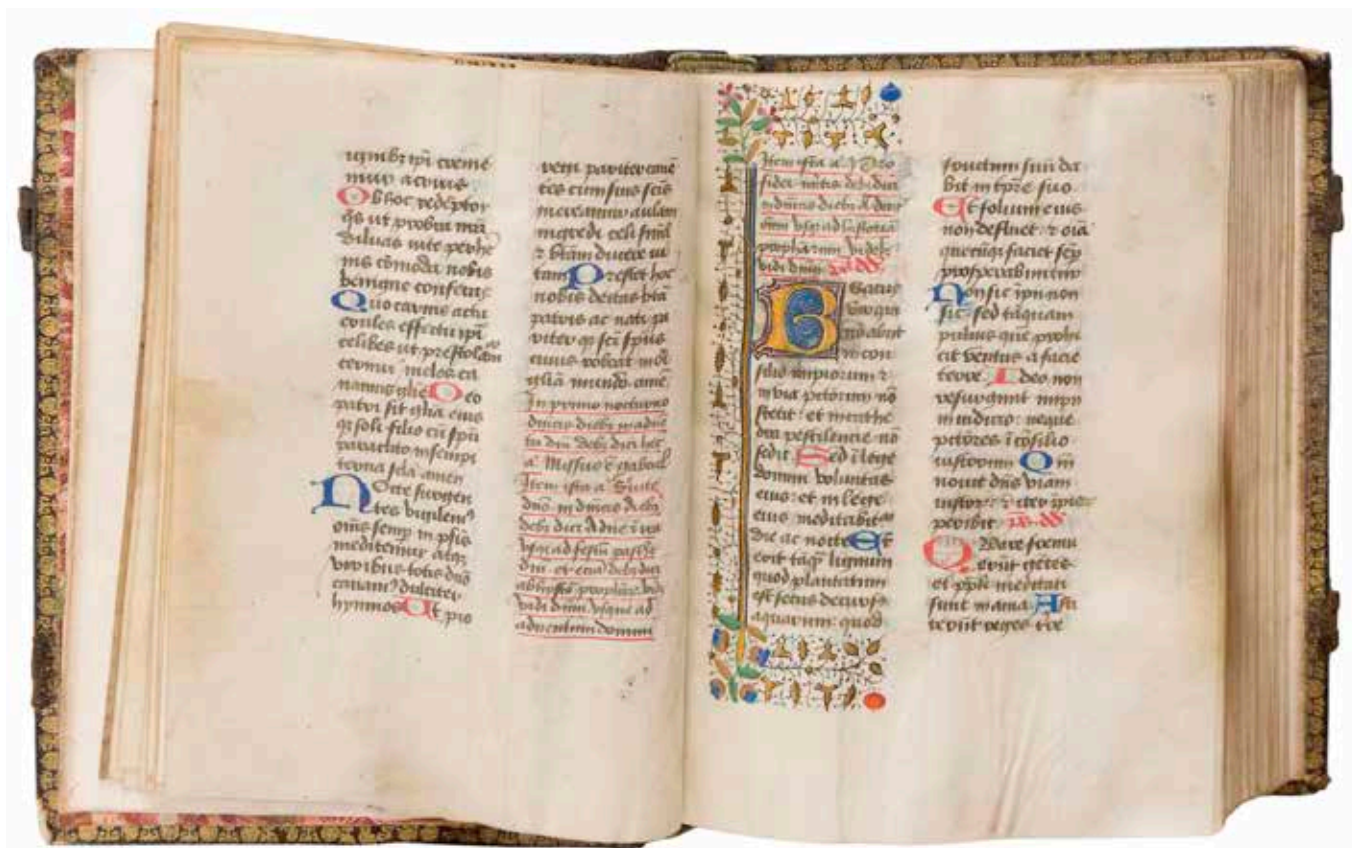 ignibr ipi creme
mur acrius
Ob hoc redēptor
qs ut probra nrā
diluas vite perhe
nis cōmoda nobis
benigne conferas
Quo carnis actu
exules effecti ipī
celibes ut prestolam
cernui melos ca
namus glīe Deo
patri sit glīa eius
qȝ soli filio cū spū
paraclito in sempi
terna scla amen
Nocte surgen
tes vigilem9
oms semp in psīs
meditemur atqȝ
viribus totis dnō
canam9 dulciter
hymnos Ut pio
regi pariter canē
tes cum suis scīs
mereamur aulam
ingredi celi simul
et btām ducere vi
tam Prestet hoc
nobis deitas btā
patris ac nati pa
riter qȝ scī spūs
cuius reboat in oī
glīa mundo amē
In primo nocturno
a Missus ē gabriel
Item ista a
usqȝ ad festū
vidi dnm usque ad
adventum domini
Item ista a
vidi dnm
Beatus
vir qui
nō abiit
in con
silio impiorum et
in via pctorum nō
stetit : et in cathe
dra pestilencie nō
sedit Sed ī lege
domini voluntas
eius : et in lege
eius meditabitur
die ac nocte Et
erit tāqȝ lignum
quod plantatum
est secus decurs9
aquarum : quod
fructum suū da
bit in tpre suo
Et folium eius
non defluet : et oīa
quecūqȝ faciet sep
prosperabuntur
Non sic ipii non
sic : sed tāquam
pulvis quē proii
cit ventus a facie
terre Ideo non
resurgunt impii
in iudicio : neque
pctōres ī cōsilio
iustorum Qm
novit dns viam
iustor : et iter ipior
peribit
Quare fremu
erūt gētes
et ppli meditati
sunt inania Asti
terūt reges tre